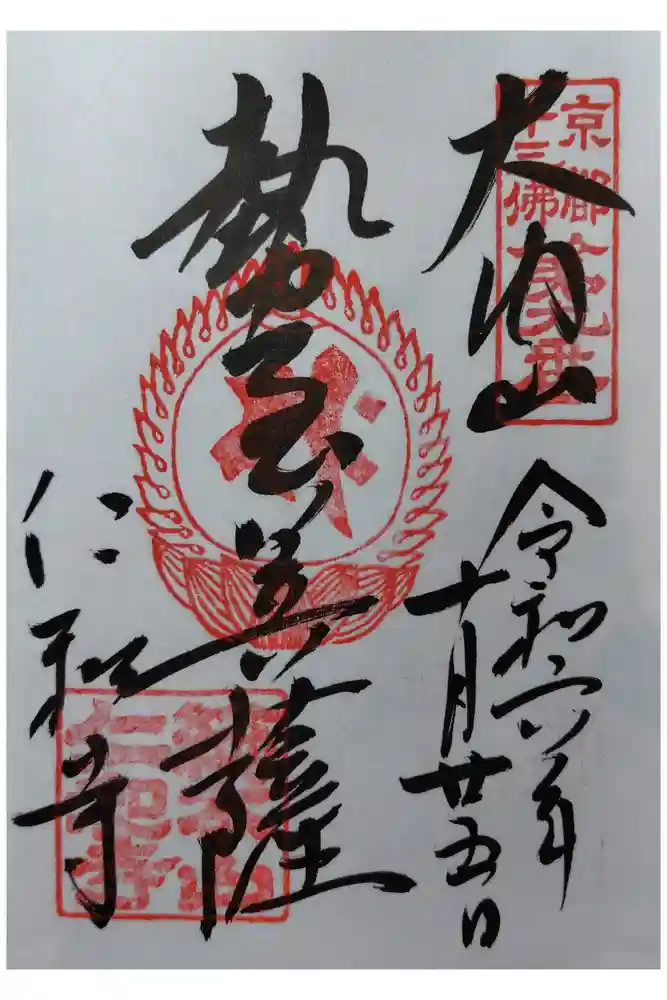 京都
十三佛
第九番
大内山
令和六年
十月廿五日
勢至菩薩
仁和寺